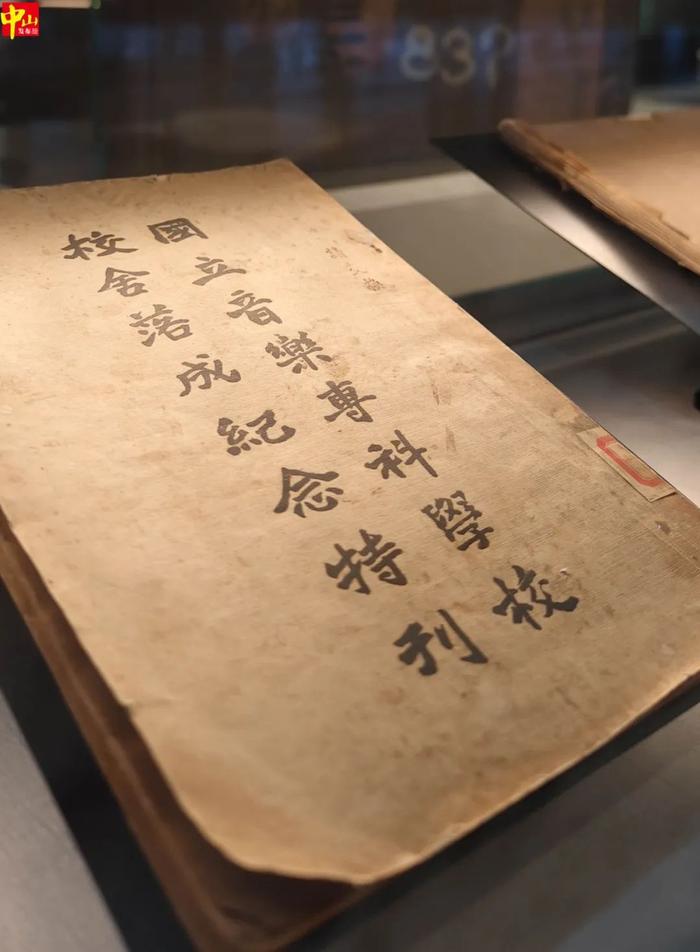 中山
发布
國立音樂專科學校
校舍落成紀念特刊
83?